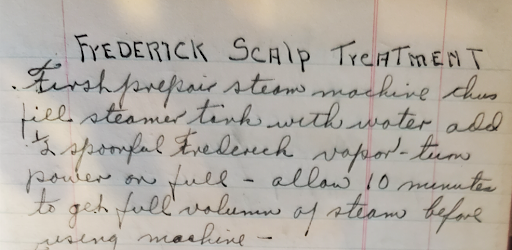 FREDERICK SCALP TREATMENT
First prepair steam machine thus
fill steamer tank with water add
½ spoonful Frederick vapor - turn
power on full - allow 10 minutes
to get full volumn of steam before
using machine -